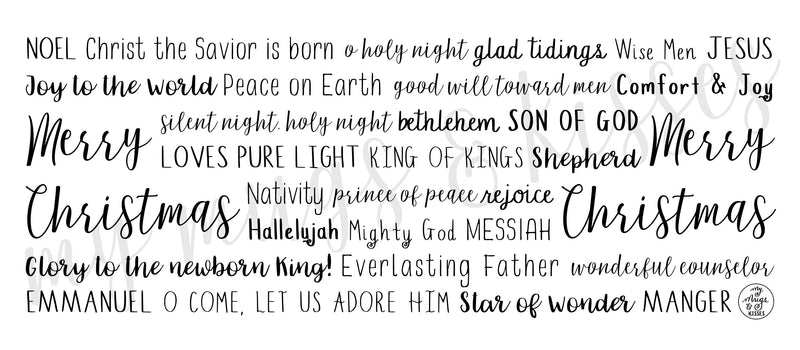 NOEL Christ the Savior is born o holy night glad tidings Wise Men JESUS
Joy to the world Peace on Earth good will toward men Comfort & Joy
Merry silent night. holy night bethlehem SON OF GOD Merry
LOVES PURE LIGHT KING OF KINGS Shepherd
Christmas Nativity prince of peace rejoice Christmas
Hallelujah Mighty God MESSIAH
Glory to the newborn King! Everlasting Father wonderful counselor
EMMANUEL O COME, LET US ADORE HIM Star of Wonder MANGER
My Mugs & KISSES
my mugs & kisses